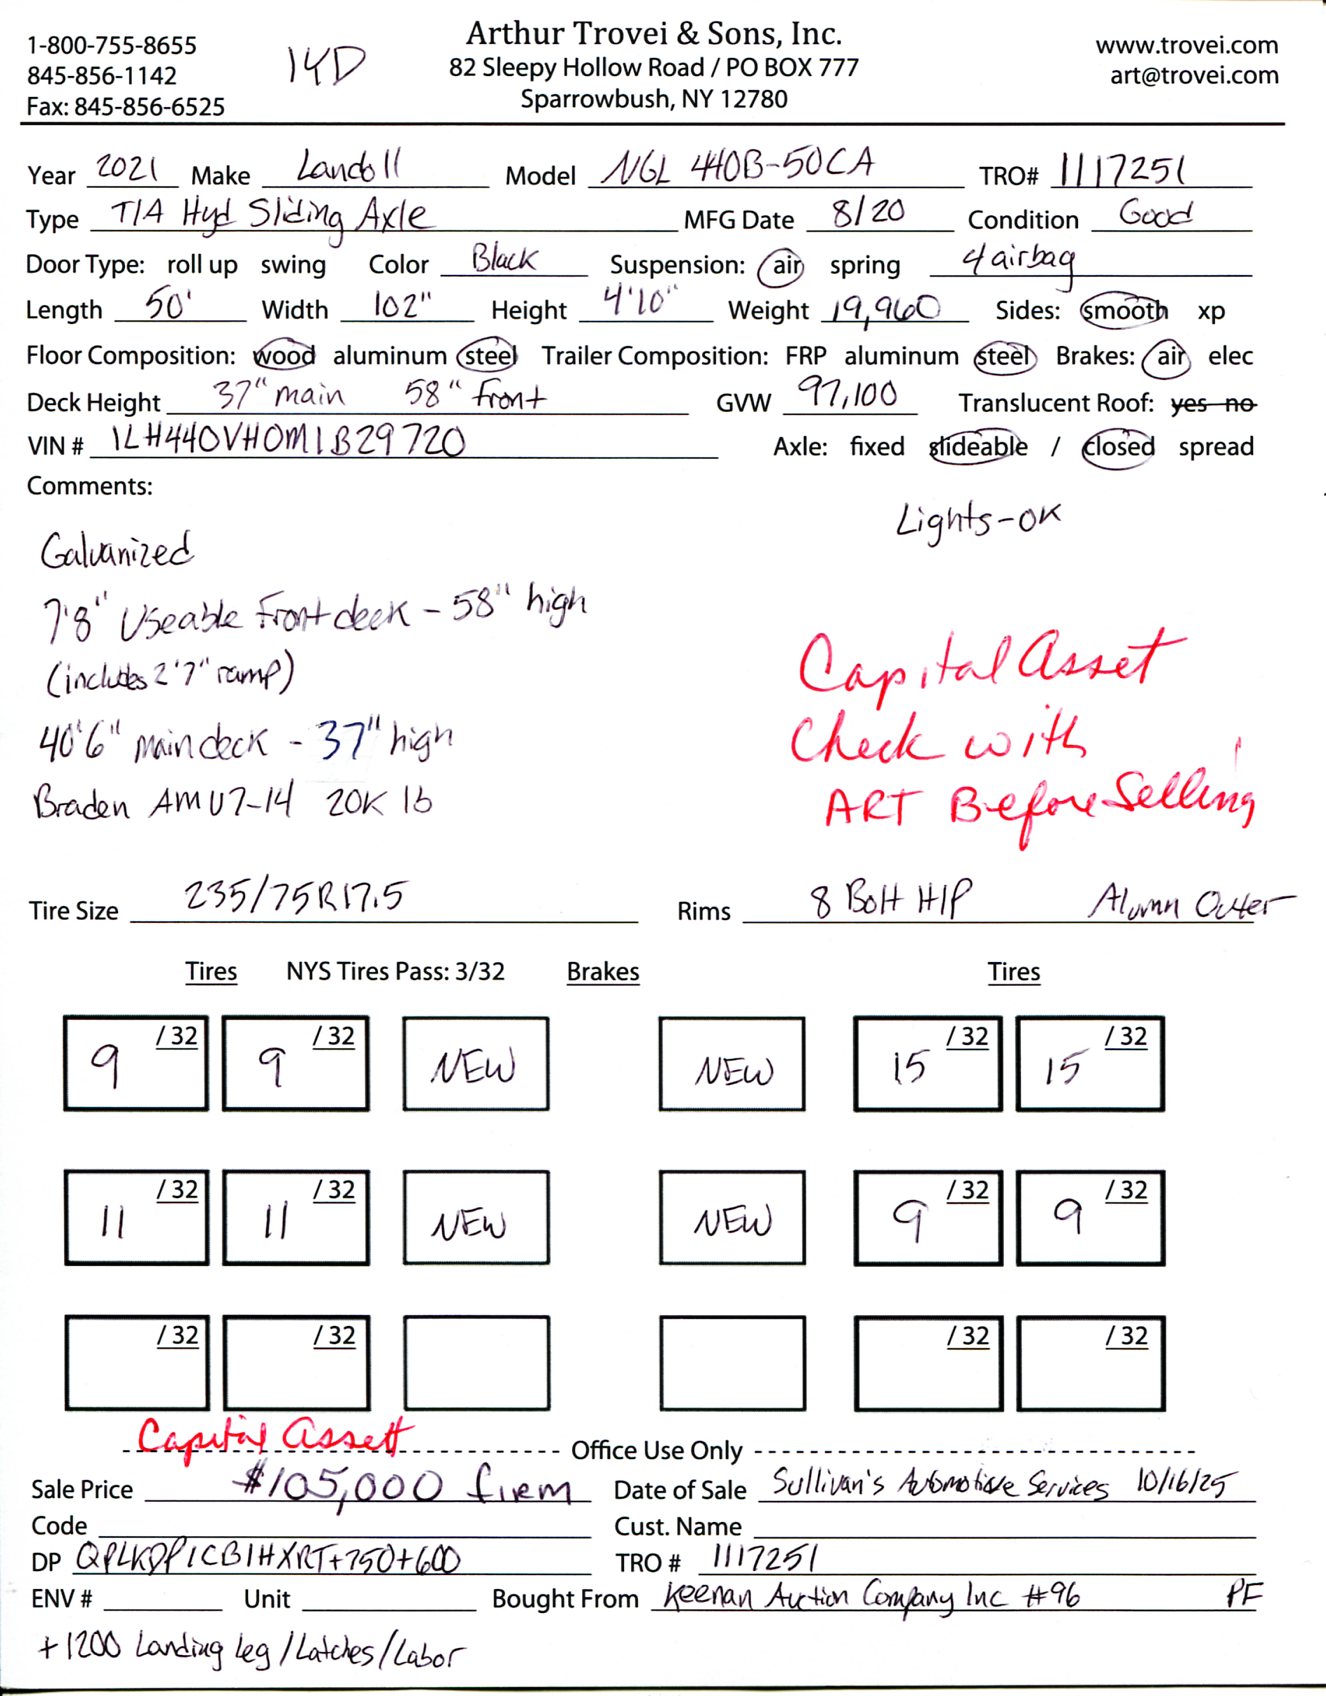 1-800-755-8655
845-856-1142
Fax: 845-856-6525
14D
Arthur Trovei & Sons, Inc.
82 Sleepy Hollow Road / PO BOX 777
Sparrowbush, NY 12780
www.trovei.com
art@trovei.com
Year 2021 Make Landoll Model NGL 440B-50CA TRO# 1117251
Type T/A Hyd Sliding Axle MFG Date 8/20 Condition Good
Door Type: roll up swing Color Black Suspension: air spring 4 airbag
Length 50' Width 102" Height 4'10" Weight 19,960 Sides: smooth xp
Floor Composition: wood aluminum steel Trailer Composition: FRP aluminum steel Brakes: air elec
Deck Height 37" main 58" front GVW 97,100 Translucent Roof: yes no
VIN # 1LH440VH0M1B29720 Axle: fixed slideable / closed spread
Comments:
Lights-OK
Galvanized
7'8" Useable Front deck - 58" high
(includes 2'7" ramp)
40'6" main deck - 37" high
Braden AMU7-14 20K lb
Capital Asset
Check with
ART Before Selling
Tire Size 235/75R17.5 Rims 8 Bolt H/P Alumn Outer
Tires NYS Tires Pass: 3/32 Brakes Tires
9 /32 9 /32 NEW NEW 15 /32 15 /32
11 /32 11 /32 NEW NEW 9 /32 9 /32
/32 /32 /32 /32
Capital Asset
Office Use Only
Sale Price $105,000 firm Date of Sale Sullivan's Automotive Services 10/16/25
Code Cust. Name
DP QPLKDP1CB1HXRT+750+600 TRO # 1117251
ENV # Unit Bought From Keenan Auction Company Inc #96 PF
+1200 Landing Leg/Latches/Labor